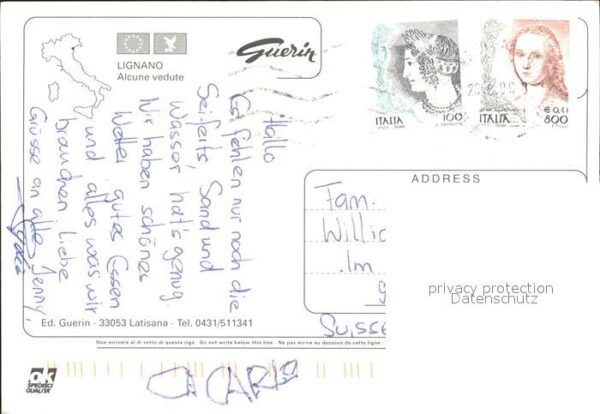 LIGNANO
Alcune vedute
Guerin
Hallo
Es fehlen nur noch die
Seifeits Sand und
Wasser hat's genug.
Wir haben schönes
Wetter gutes Essen
und alles was wir
brauchen Liebe
Grüsse an alle Jenny,
CIAO CARIO
ITALIA 100
ITALIA 800
€ 0,41
ADDRESS
Fam.
Willi
Im
Suisse
privacy protection
Datenschutz
Ed. Guerin - 33053 Latisana - Tel. 0431/511341
Non scrivere al di sotto di questa riga Do not write below this line Ne pas écrire au dessous de cette ligne
ok
SPEDISCI
QUALITÀ